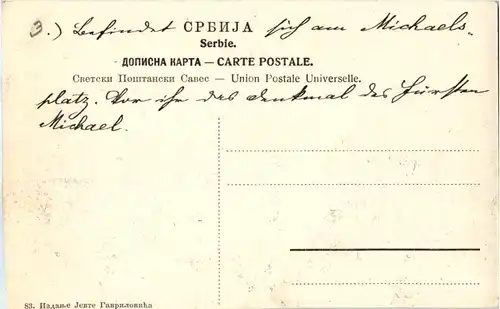 3.) Befindet СРБИЈА sich am Michaels-
Serbie.
ДОПИСНА КАРТА — CARTE POSTALE.
Светски Поштански Савес — Union Postale Universelle.
platz. Vor ihr das denkmal des Fürsten
Michael.
83. Издање Јевте Гавриловића